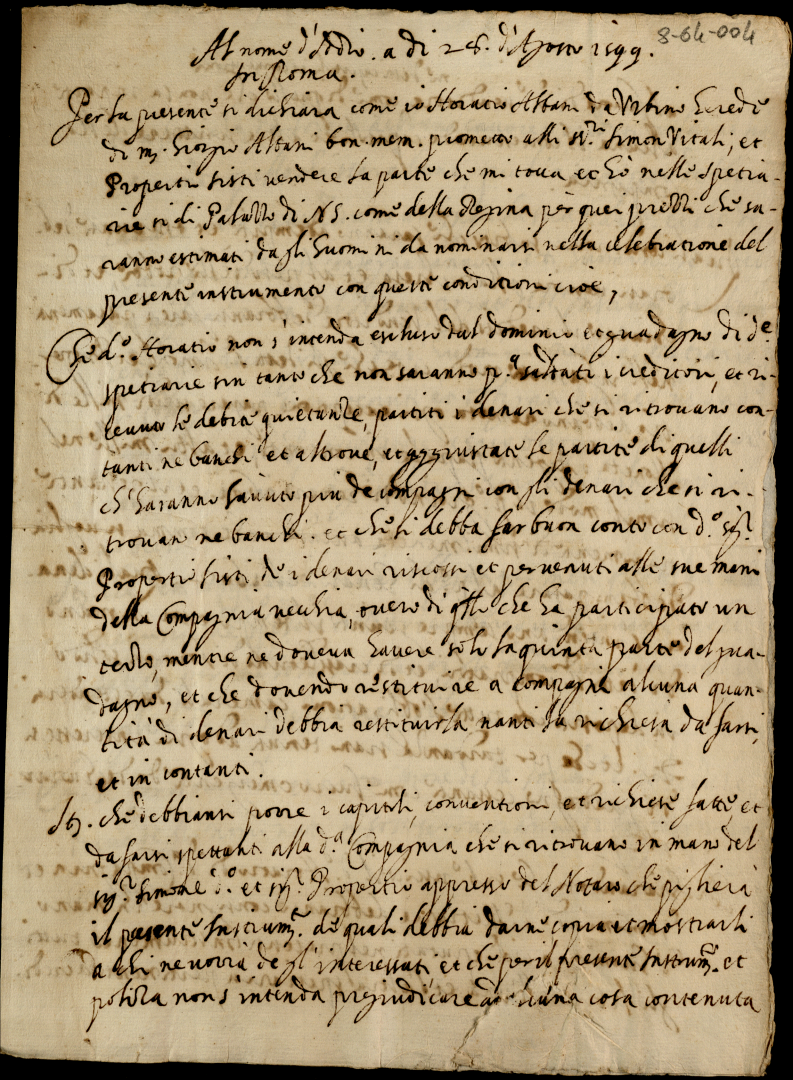 8-64-004
Al nome d'Adio. a di 28. d'Agosto 1599.
In Roma.
Per la presente si dichiara come io Horatio Albani da Urbino herede
di m. Giorgio Albani bon. mem. prometto alli Sri Simon Vitali, et
Propertio Sisti vendere la parte che mi tocca et hò nelle spetia-
rie si di Palazzo di N.S. come della Regina per quei prezzi che sa-
ranno estimati dagli huomini da nominarsi nella celebratione del
presente instrumento con queste conditioni cioè,
Che do. Horatio non s'intenda escluso dal dominio et guadagno di de.
spetiarie sin tanto che non saranno pa. saldati i creditori, et ri-
ceuuto le debite quietanze, partiti i denari che si ritrovano con-
tanti ne banchi et altrove, et aggiustate le partite di quelli
ch'haranno hauuto più de compagni con gli denari che si ri-
trovan ne banchi. et che si debba far buon conto con do. sigr.
Propertio Sisti de i denari riscossi et pervenuti alle sue mani
della Compagnia vecchia, overo di qlli che ha participato un
terzo, mentre ne doveva havere solo la quinta parte del gua-
dagno, et che dovendo restituire a compagni alcuna quan-
tità di denari debbia restituirla nanti la richiesta da farsi,
et in contanti.
It. che debbiansi porre i capitoli, conventioni, et richieste fatte, et
da farsi spettanti alla da. Compagnia che si ritrovano in mano del
sigr. Simone do. et sigr. Propertio appresso del Notaro che piglierà
il presente Instrumto. de quali debbia darne copia et mostrarli
a chi ne vorrà de gl'interessati et che per il presente Instrumto. et
poliza non s'intenda pregiudicare ad alcuna cosa contenuta